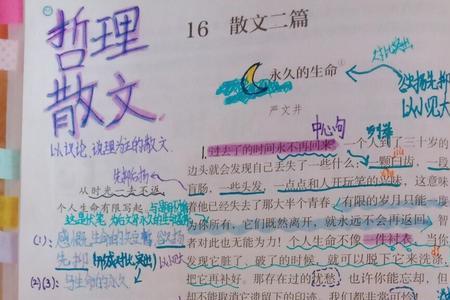 哲理
散文
以议论、说理为主的散文
16 散文二篇
永久的生命①
严文井
对比突出
欲扬先抑
以小见大
中心句
罗列
1.过去了的时间永不再回来。一个人到了三十岁的
边头就会发现自己丢失了一些什么:一颗臼齿、一段
盲肠、一些头发、一点点和人开玩笑的兴味,这意味
着他已经失去了那大半个青春。有限的岁月只能一度
为你所有,它们既然离开,就永远不会再返回。智
者对此也无能为力!个人生命不像一件衬衣,当你
发现它脏了、破了的时候,就可以脱下它来洗涤,
把它再补好。那存在过的忧愁,也许你能忘却,但
却不能取消它遗留下的印迹。我们都非常可怜
先抑后扬
从时光一去不返,
个人生命有限写起
(1):感慨生命的
欲扬
先抑
(2)(3):与生命的永久